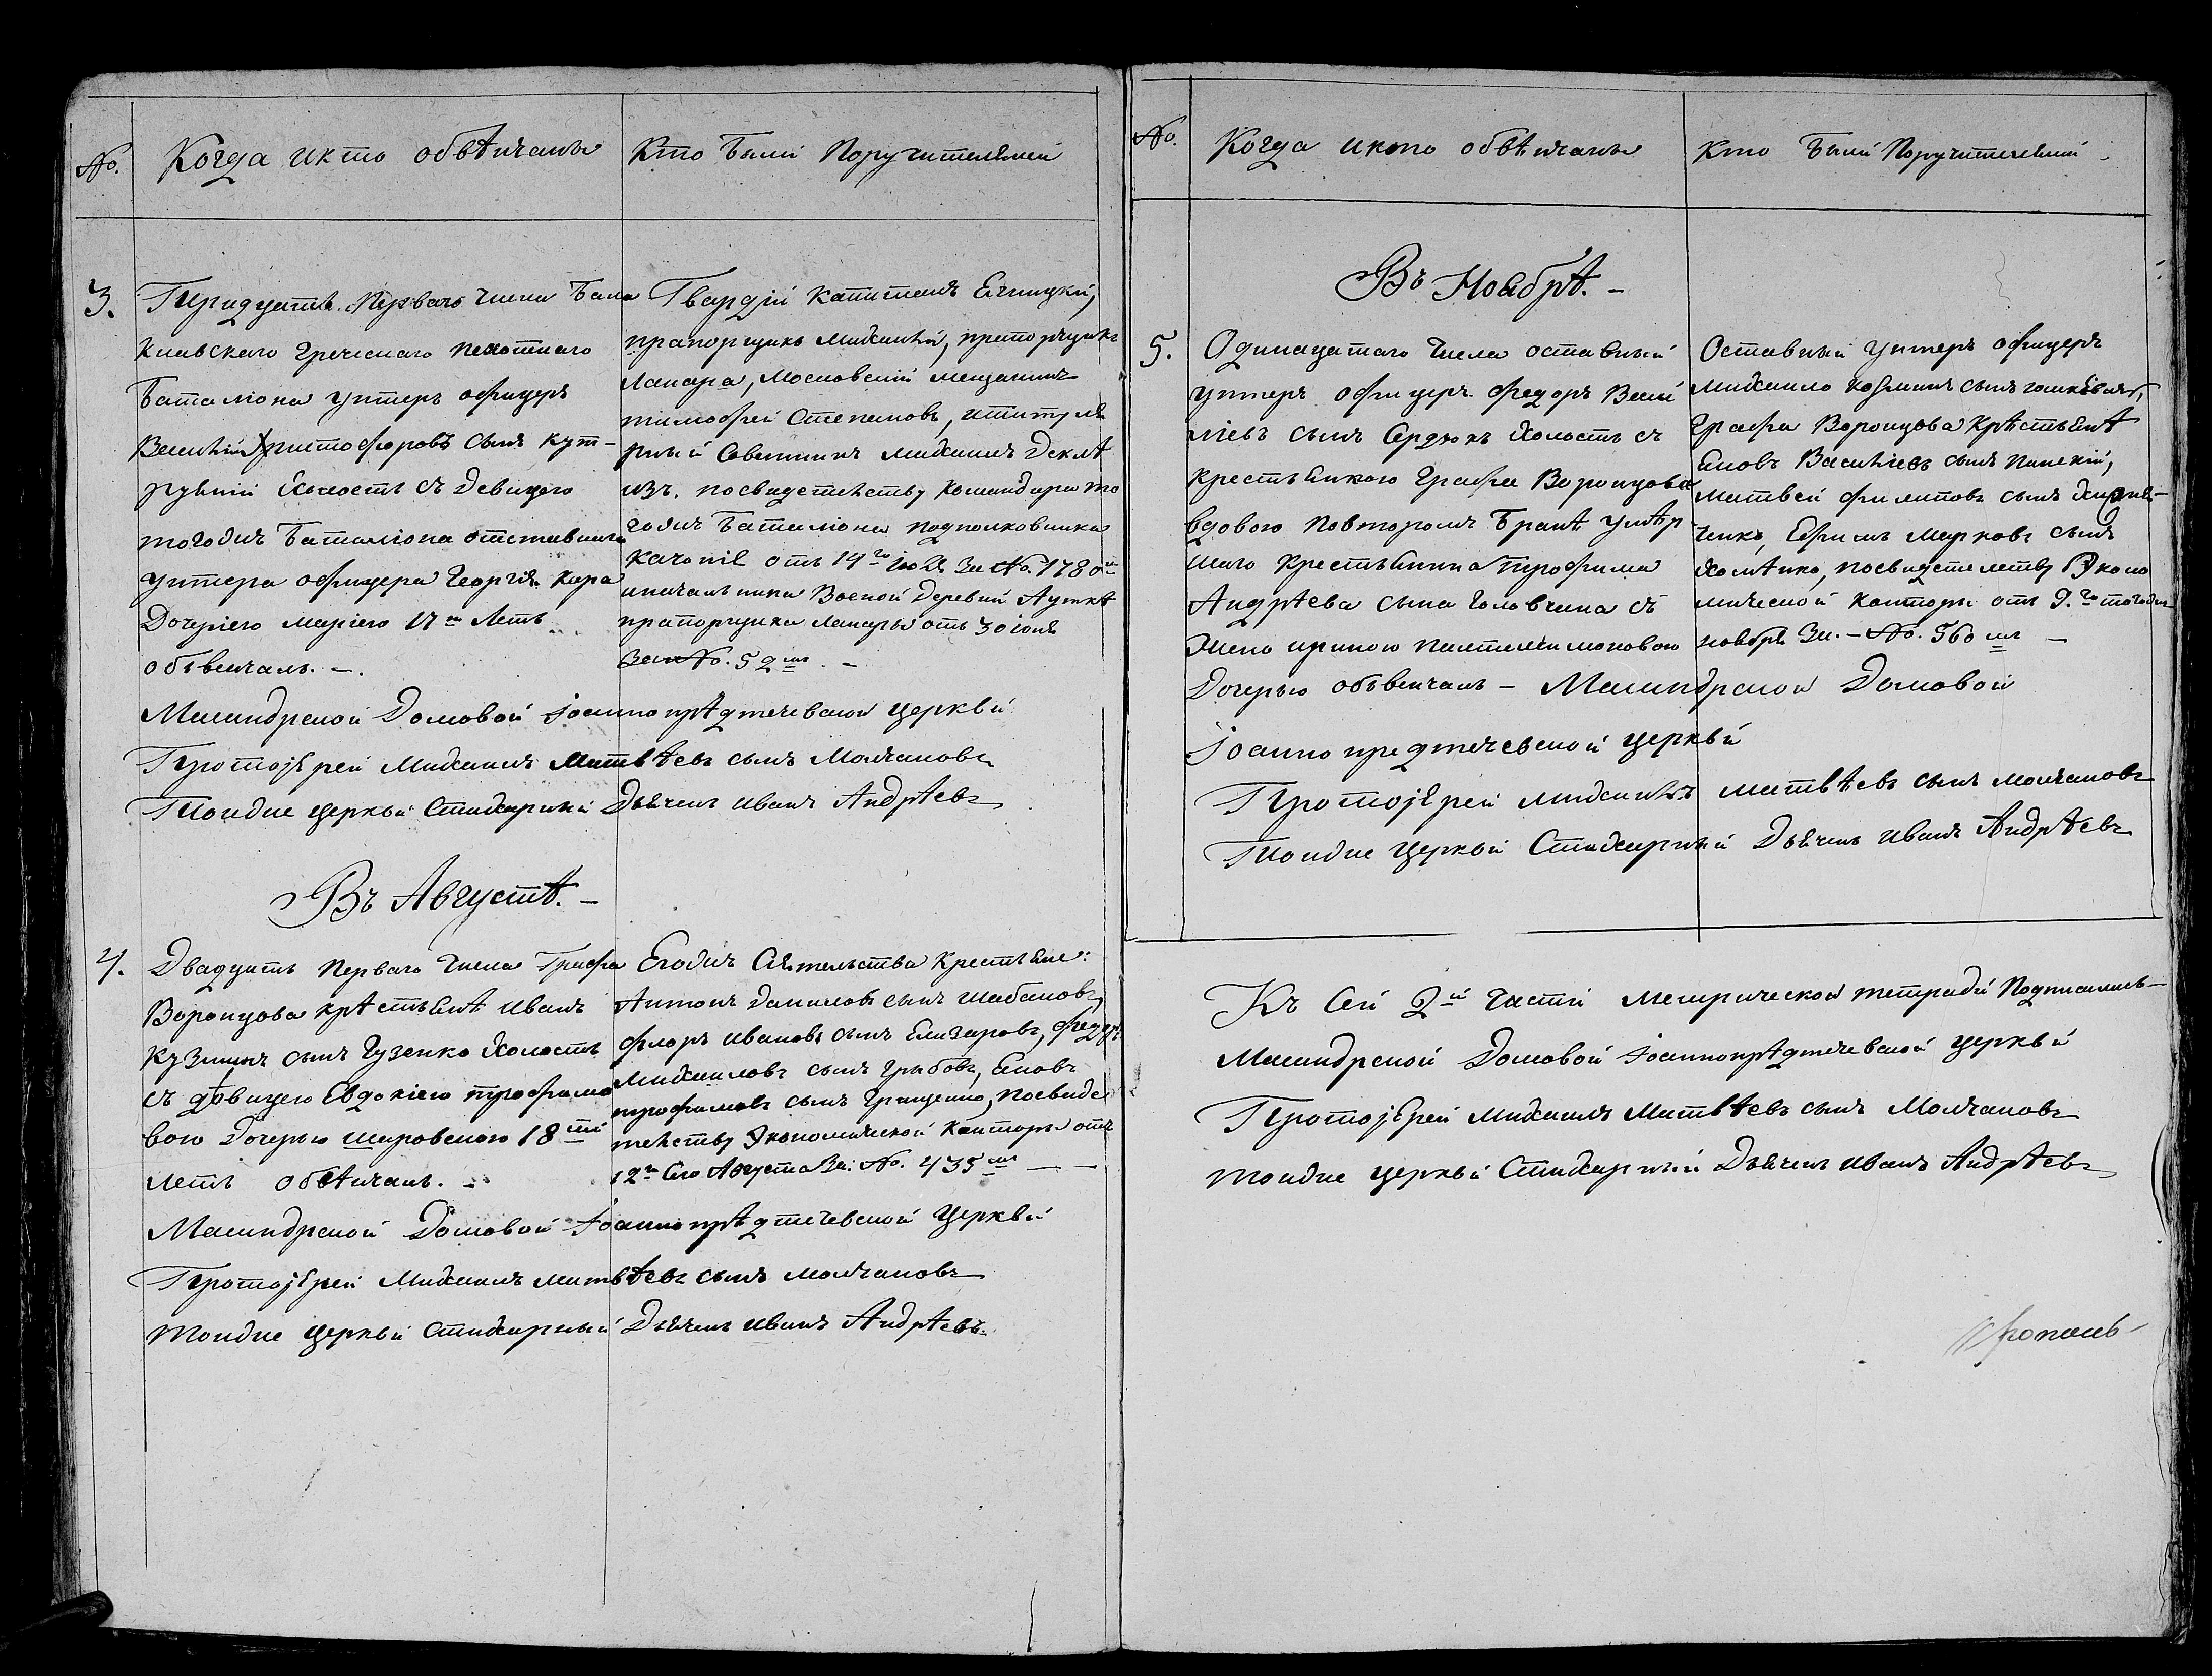 No.
Когда икто обвѣнчаны
Кто Были Поручителями
3.
Тридцать Перваго числа Бала
клавскаго Греческаго пехотнаго
Баталіона унтеръ офицеръ
Василій Христофоровъ сынъ Кут-
рувпи Холостъ съ Девицею
тогожъ Баталіона отставнаго
унтера офицера Георгія Кара
Дочерією Марією 17ᵗⁱ Летъ
объвенчалъ. –.
Гвардіи Капитанъ
прапорщикъ Михаили, прапорщикъ
Лапара, Московскій мещанинъ
тимофей Степановъ, ититуля
рный Советникъ Михаилъ
посвидетелству Командира то
гожъ Баталіона подполковника
Качоніе отъ 14го Іюля За No. 1780мъ
иначальника Военой Деревни Аутки
прапорщика Лапары отъ 30 іюля
За No. 52мъ –
Масандрской Домовой Іоаннопрѣдтечевской церквѣй
Протоіерей Михаилъ Матвѣевъ сынъ Молчановъ
Тоидже церквѣй Стихарный Дьячекъ Иванъ Андрѣевъ
Въ Августѣ. –
4.
Двадцать Перваго числа Графа
Воронцова крѣстьянѣ Иванъ
Кузминъ сынъ Гузенко Холостъ
съ дѣвицею Евдокією трофимо
вою Дочерью Шаровскою 18ти
летъ обвѣнчалъ. –
Егожъ Сіятельства Крестьяне:
Антонъ Даниловъ сынъ Шабановъ,
флоръ Ивановъ сынъ Елизаровъ, федоръ
Михаиловъ сынъ Грибовъ, Яковъ
трофимовъ сынъ Грищенко, посвиде
телству Экономической Канторы отъ
12го Сего Августа За No. 435мъ – –
Масандрской Домовой Іоаннопрѣдтечевской Церквѣй
Протоіерей Михаилъ матвѣевъ сынъ молчановъ
Тоидже церквѣй стихарный Дьячекъ Иванъ Андрѣевъ.
No.
Когда икто обвѣнчаны
Кто Были Поручителями
Въ Ноябрѣ. –
5.
Одинацатаго Числа оставный
унтеръ офицеръ федоръ Васи
ліевъ сынъ Сердюкъ Холостъ съ
крестьянкою Графа Воронцова
вдовою повторомъ Бракѣ умѣр
шаго крестьянина трофима
Андрѣева сына Головчина съ
Жено ириною пантелеимоновою
Дочерью объвенчалъ – Масандрской Домовой
Іоаннопредтечевской церквѣй
Оставный Унтеръ офицеръ
михаило козминъ сынъ
Графа Воронцова Крѣстьянѣ
Яковъ Васильевъ сынъ
матвѣй филиповъ сынъ
Ефимъ Марковъ сынъ
Хомѣнко, посвидетелству Эконо
мической Канторы отъ 9.го тогожъ
ноября За. – No. 560мъ –
Протоіерей михаилъ матвѣевъ сынъ молчановъ
Тоидже церквѣй Стихарный Дьячекъ Иванъ Андрѣевъ
Къ Сей 2й части Метрической тетради Подписались –
Масандрской Домовой Іоаннопрѣдтечевской церквѣй
Протоіерей Михаилъ Матвѣевъ сынъ Молчановъ
тоидже церквѣй Стихарный Дьячекъ Иванъ Андрѣевъ